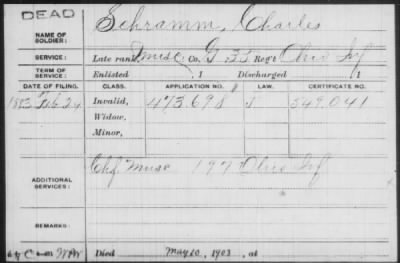 DEAD
NAME OF SOLDIER: Schramm, Charles
SERVICE: Late rank, Musc, Co. G 32 Reg't Ohio Inf
TERM OF SERVICE: Enlisted , 1 Discharged , 1
DATE OF FILING. CLASS. APPLICATION NO. LAW. CERTIFICATE NO.
1883 Feb 24 Invalid, 473.698 549.041
Widow,
Minor,
ADDITIONAL SERVICES: Chf Musc 197 Ohio Inf
REMARKS:
Died May 20, 1903, at